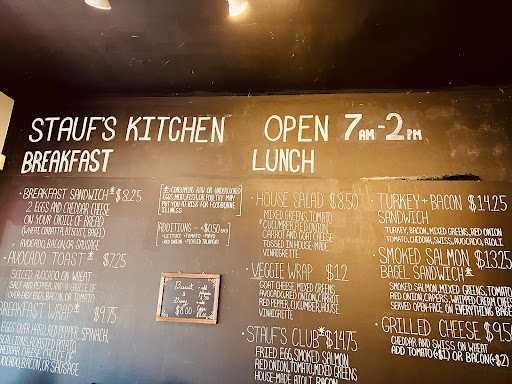 STAUF'S KITCHEN
OPEN 7AM-2PM
BREAKFAST
• BREAKFAST SANDWICH* $8.25
2 EGGS AND CHEDDAR CHEESE
ON YOUR CHOICE OF BREAD
(WHEAT, CIABATTA, BISCUIT, BAGEL)
• AVOCADO, BACON, OR SAUSAGE
AVOCADO TOAST* $7.25
SLICED AVOCADO ON WHEAT
SALT AND PEPPER, AND A CHOICE OF
OVER EASY EGGS, BACON, OR TOMATO
BREAKFAST WRAP* $9.75
EGGS OVER HARD, RED PEPPER, SPINACH,
SCALLIONS, ROASTED POTATO,
CHEDDAR CHEESE
AVOCADO, BACON, OR SAUSAGE
*CONSUMING RAW OR UNDERCOOKED
EGGS, MEAT, FISH, OR POULTRY MAY
PUT YOU AT RISK FOR FOODBORNE
ILLNESS
ADDITIONS - +$0.50 EACH
• LETTUCE • TOMATO • MAYO
• RED ONION • PICKLED JALAPEÑO
Biscuit
Gravy
$6.00
LUNCH
• HOUSE SALAD $8.50
MIXED GREENS, TOMATO
CUCUMBER, RED ONION,
CARROT AND GOAT CHEESE
TOSSED IN HOUSE-MADE
VINAIGRETTE
• VEGGIE WRAP $12
GOAT CHEESE, MIXED GREENS
AVOCADO, RED ONION, CARROT
RED PEPPER, CUCUMBER, HOUSE
VINAIGRETTE
• STAUF'S CLUB* $14.75
FRIED EGG, SMOKED SALMON
RED ONION, TOMATO, MIXED GREENS
HOUSE-MADE AIOLI, BACON
• TURKEY + BACON $14.25
SANDWICH
TURKEY, BACON, MIXED GREENS, RED ONION
TOMATO, CHEDDAR, SWISS, AVOCADO, AIOLI
• SMOKED SALMON $13.25
BAGEL SANDWICH*
SMOKED SALMON, MIXED GREENS, TOMATO
RED ONION, CAPERS, WHIPPED CREAM CHEESE
SERVED OPEN-FACE, ON EVERYTHING BAGEL
• GRILLED CHEESE $9.50
CHEDDAR AND SWISS ON WHEAT
ADD TOMATO (+$1) OR BACON (+$2)